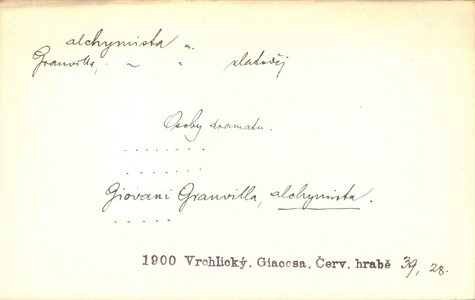 alchymista m.
Granvilla, ~ " zlatoděj
Osoby dramatu.
. . . . . . . .
. . . . . . .
Giovani Granvilla, alchymista.
. . . . .
1900 Vrchlický, Giacosa, Červ. hrabě 39, 28.